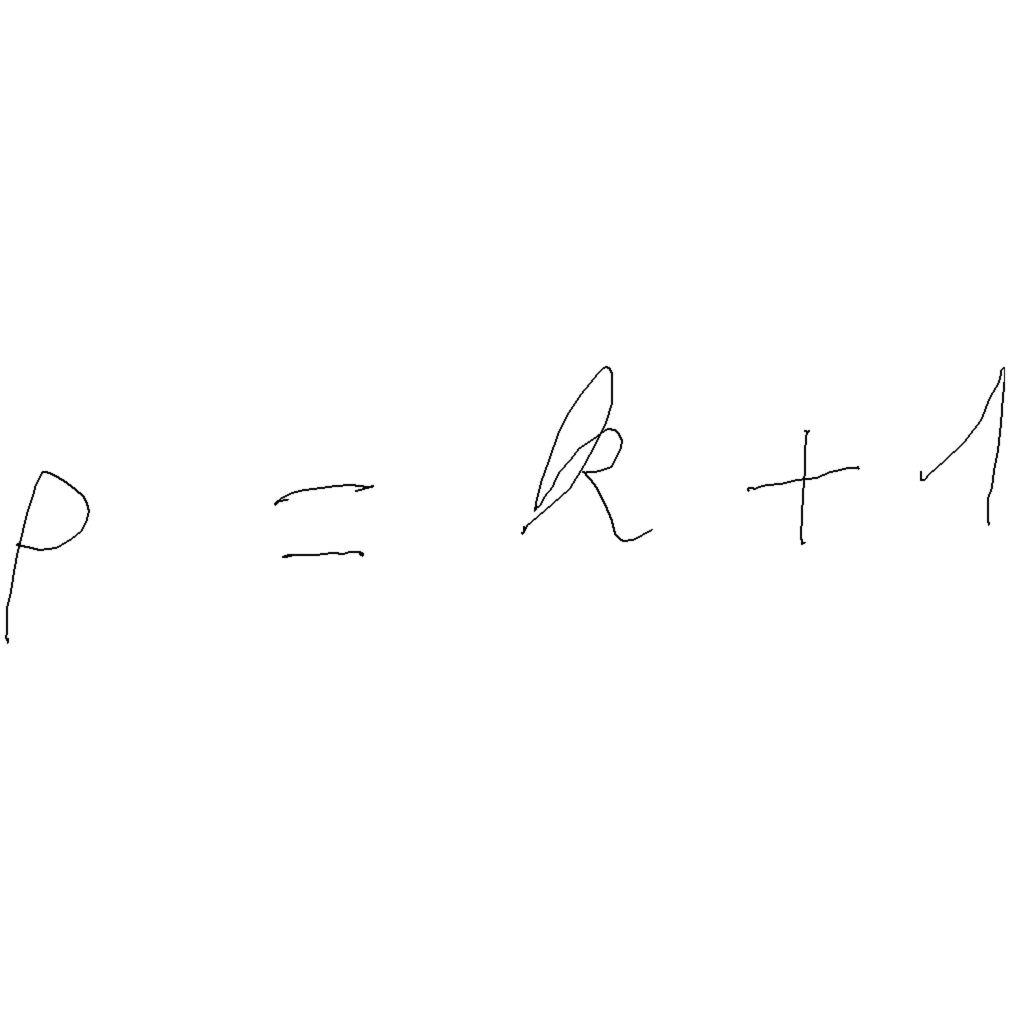 p = k + 1